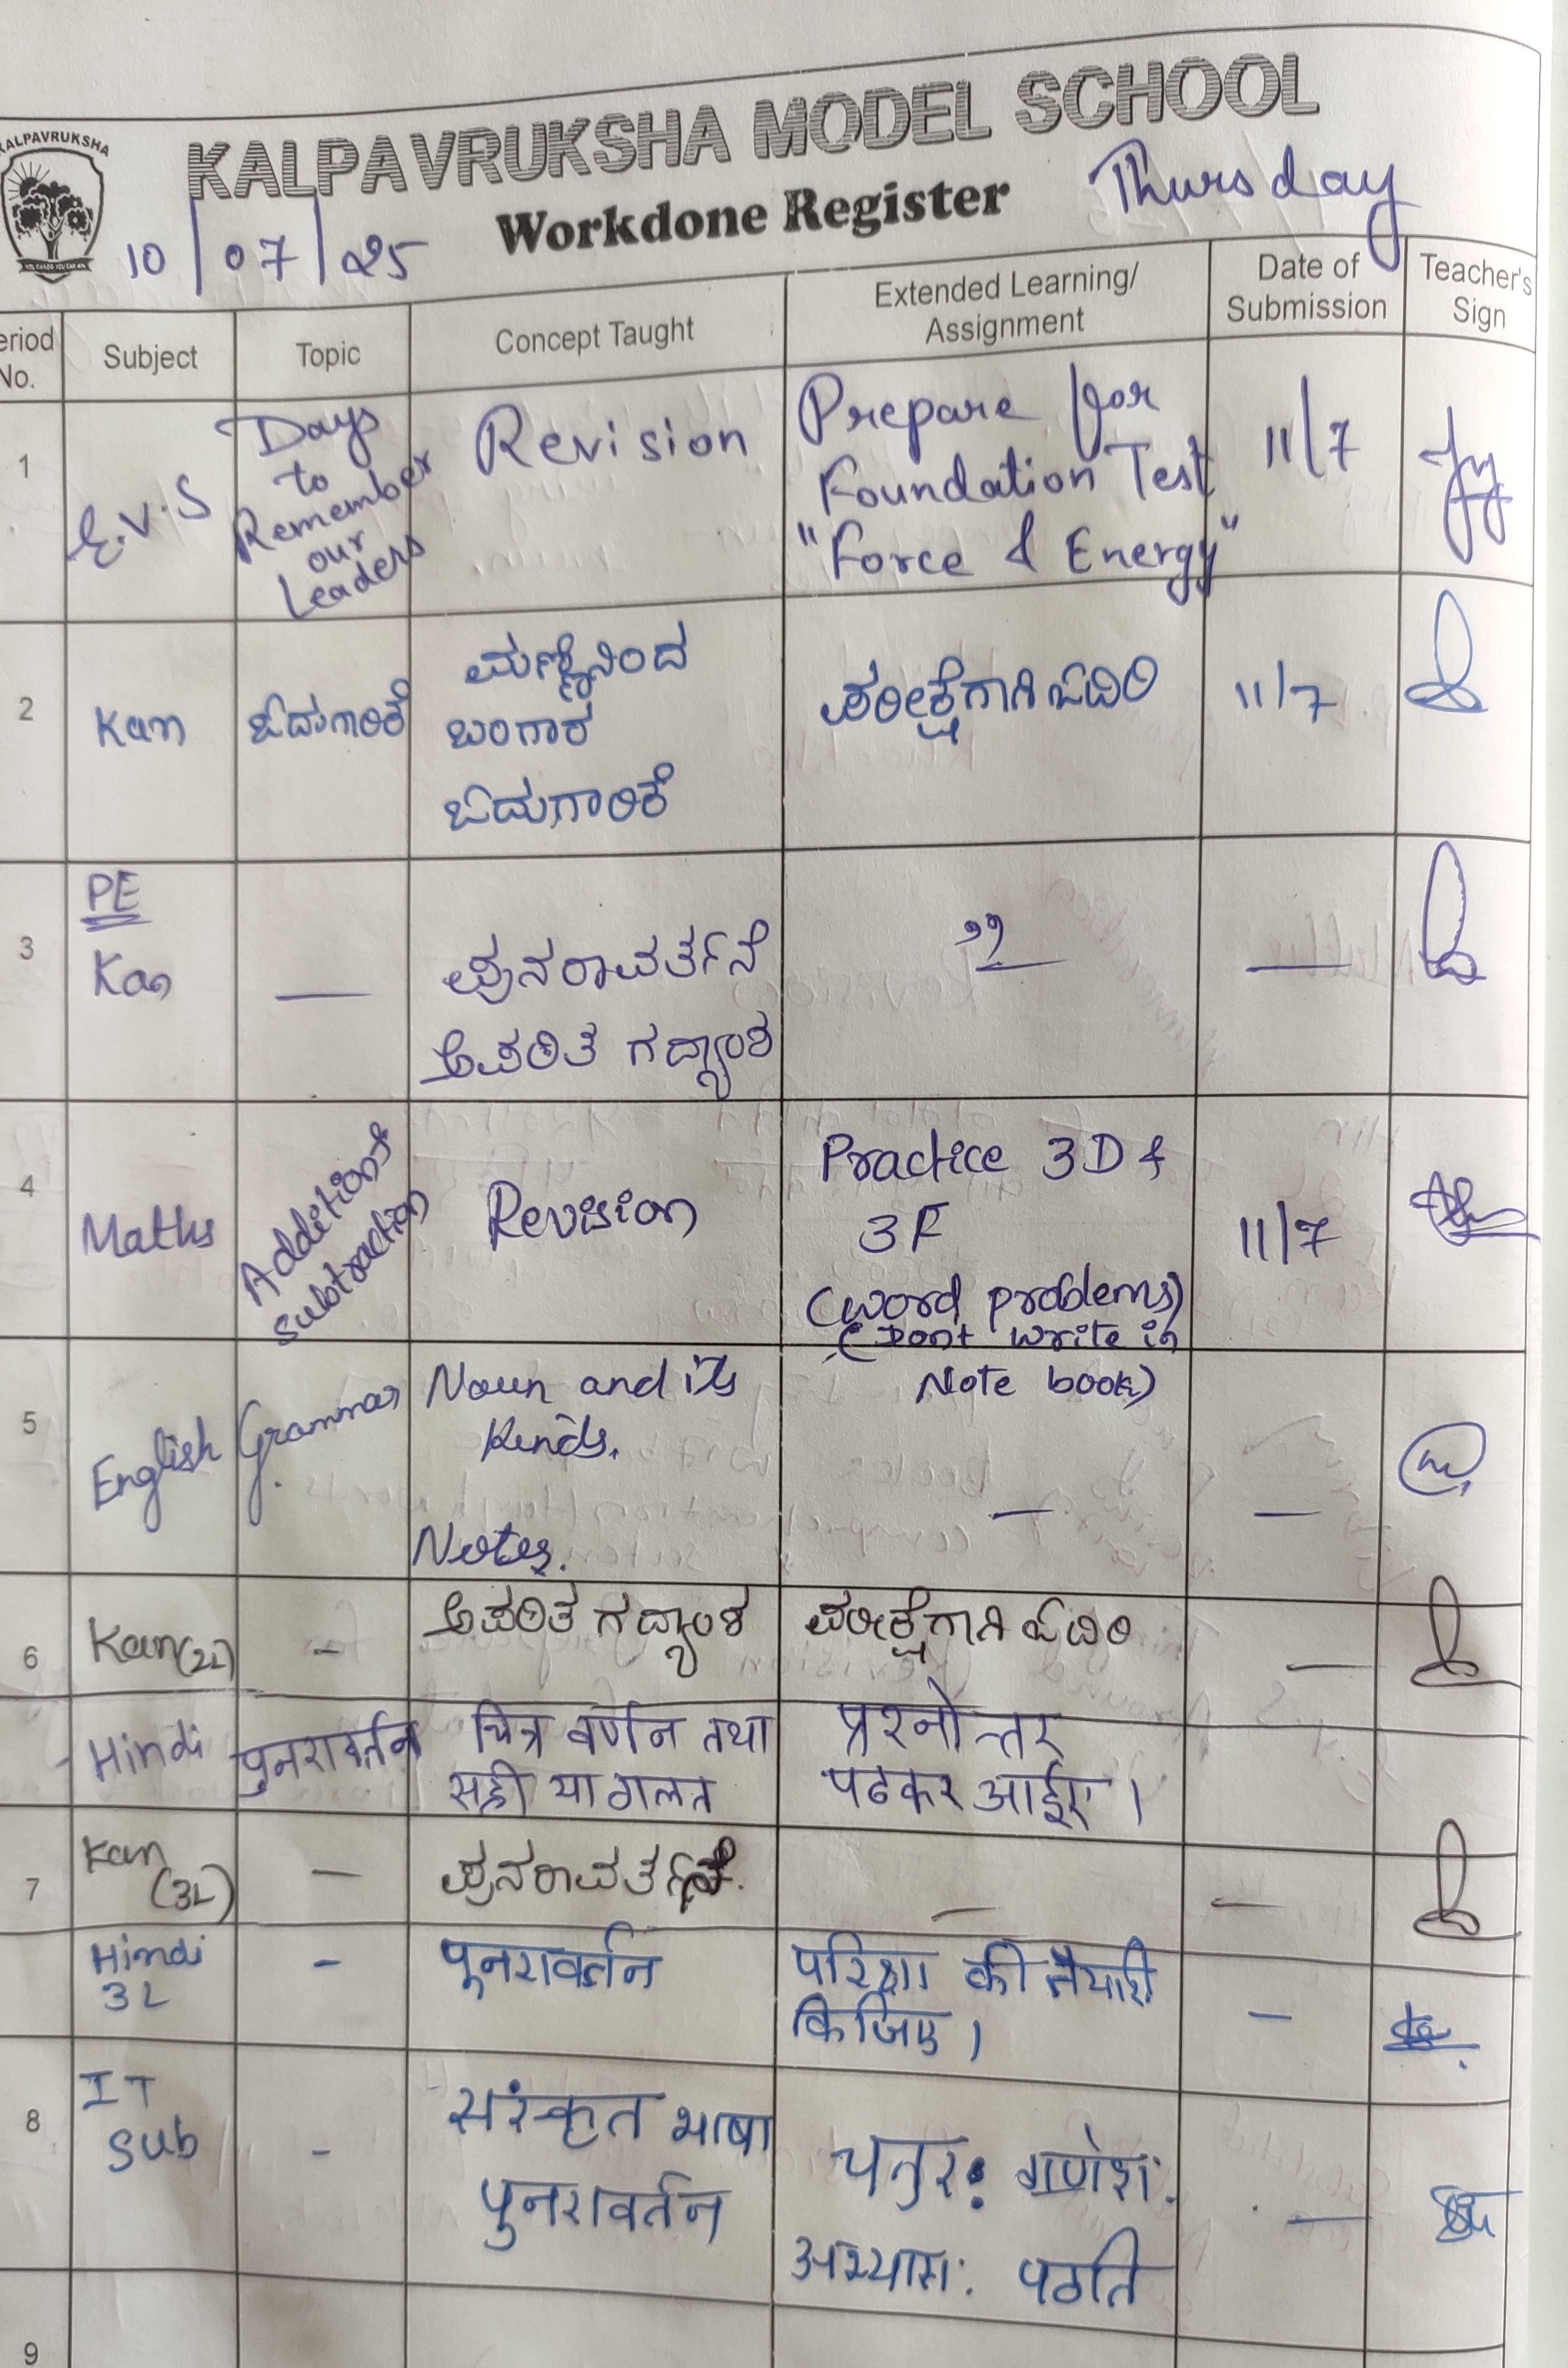 KALPAVRUKSHA
KALPAVRUKSHA MODEL SCHOOL
Workdone Register
Thursday
10/07/25
Period No.
Subject
Topic
Concept Taught
Extended Learning/
Assignment
Date of
Submission
Teacher's
Sign
1
E.V.S
Days
to
Remember
our
Leaders
Revision
Prepare for
Foundation Test
"Force & Energy"
11/7
2
Kan
ಓದುಗಾರಿಕೆ
ಮಣ್ಣಿನಿಂದ
ಬಂಗಾರ
ಓದುಗಾರಿಕೆ
ಪರೀಕ್ಷೆಗಾಗಿ ಓದಿರಿ
11/7
3
PE
Kan
—
ಪುನರಾವರ್ತನೆ
ಅಪಠಿತ ಗದ್ಯಾಂಶ
"
—
4
Maths
Addition &
Subtraction
Revision
Practice 3D &
3F
(word problems)
(Dont write in
Note book)
11/7
5
English
Grammar
Noun and its
kinds.
Notes.
—
—
6
Kan(2L)
-
ಅಪಠಿತ ಗದ್ಯಾಂಶ
ಪರೀಕ್ಷೆಗಾಗಿ ಓದಿರಿ
—
Hindi
पुनरावर्तन
चित्र वर्णन तथा
सही या गलत
प्रश्नोत्तर
पढकर आईए।
7
Kan
(3L)
—
ಪುನರಾವರ್ತನೆ.
—
—
Hindi
3L
-
पुनरावर्तन
परिक्षा की तैयारी
किजिए।
—
8
IT
Sub
-
संस्कृत भाषा
पुनरावर्तन
चतुरः गणेशः
अभ्यासः पठति
—
9